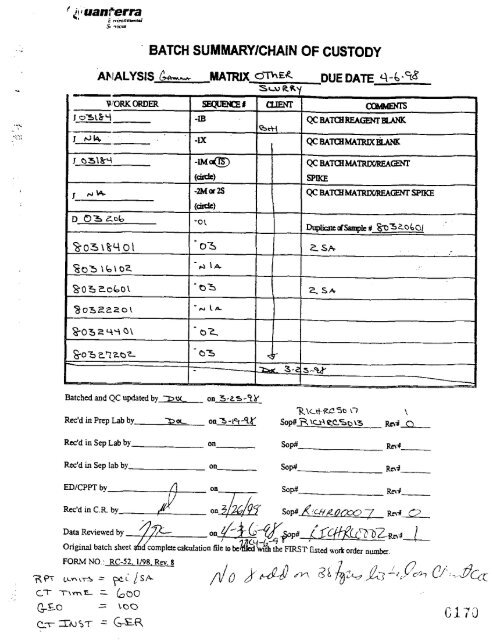 Quanterra
Environmental
Services
BATCH SUMMARY/CHAIN OF CUSTODY
ANALYSIS Gamma MATRIX OTHER DUE DATE 4-6-98
SLURRY
WORK ORDER SEQUENCE # CLIENT COMMENTS
J 03184 -1B QC BATCH REAGENT BLANK
J NA -1X QC BATCH MATRIX BLANK
J 03184 -1M or 1S QC BATCH MATRIX/REAGENT
(circle) SPIKE
J NA -2M or 2S QC BATCH MATRIX/REAGENT SPIKE
(circle)
D 03206 -01 Duplicate of Sample # 80320601
80318401 -03 2 SA
80316102 -N/A
80320601 -03 2 SA
80322201 -N/A
80324401 -02
80327202 -03
3-25-98
Batched and QC updated by on 3-25-98
RICHRC5017 1
Rec'd in Prep Lab by on 3-19-98 Sop# RICHRC5013 Rev# 0
Rec'd in Sep Lab by on Sop# Rev#
Rec'd in Sep lab by on Sop# Rev#
ED/CPPT by on Sop# Rev#
Rec'd in C.R. by on 3/26/98 Sop# RICHRD0007 Rev# 0
Data Reviewed by on 4-6-98 Sop# Rev# 1
Original batch sheet and complete calculation file to be filed with the FIRST listed work order number.
FORM NO.: RC-52, 1/98, Rev. 8
RPT units = pCi/SA
CT TIME = 600
GEO = 100
CT INST = GER
No on listed on
0170